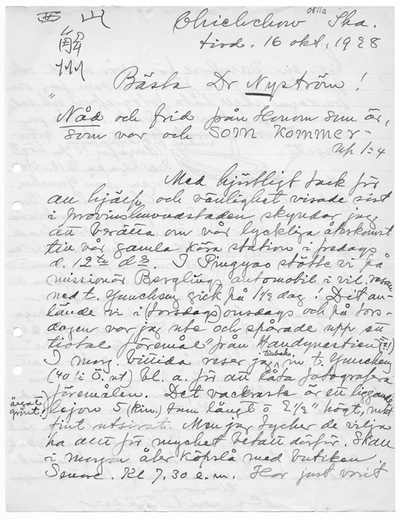 山西
解
州
Chiehchow Sha.
tisd. 16 okt. 1928
Bästa Dr Nyström!
"Nåd och frid från Honom som är,
som var och SOM KOMMER –
Up 1:4
Med hjärtligt tack för
all hjälp och vänlighet visade sist
i provinshuvudstaden skyndar jag
att berätta om vår lyckliga återkomst
till vår gamla kära station i fredags
d. 12te ds. I Pingyao stötte vi på
missionär Berglings automobil i vil. resan
ned t. Yuncheng gick på 1½ dag! Dit an-
lände vi i (torsdags) onsdags och på tors-
dagen var jag ute och spårade upp en
tiotal föremål från Handynastien (?!)
I morg. bittida reser jag tillbaka t. Yuncheng
(40 li Ö. ut) bl. a. för att låta fotografera
föremålen. Det vackraste är en liggande
lejon 5 (kin.) tum långt o. 2½" högt, mkt
fint utsirat. Men jag tycker de vilja
ha allt för mycket betalt därför. Skall
i morgon åter köpslå med butiken.
Senare. Kl 7.30 e.m. Har just varit